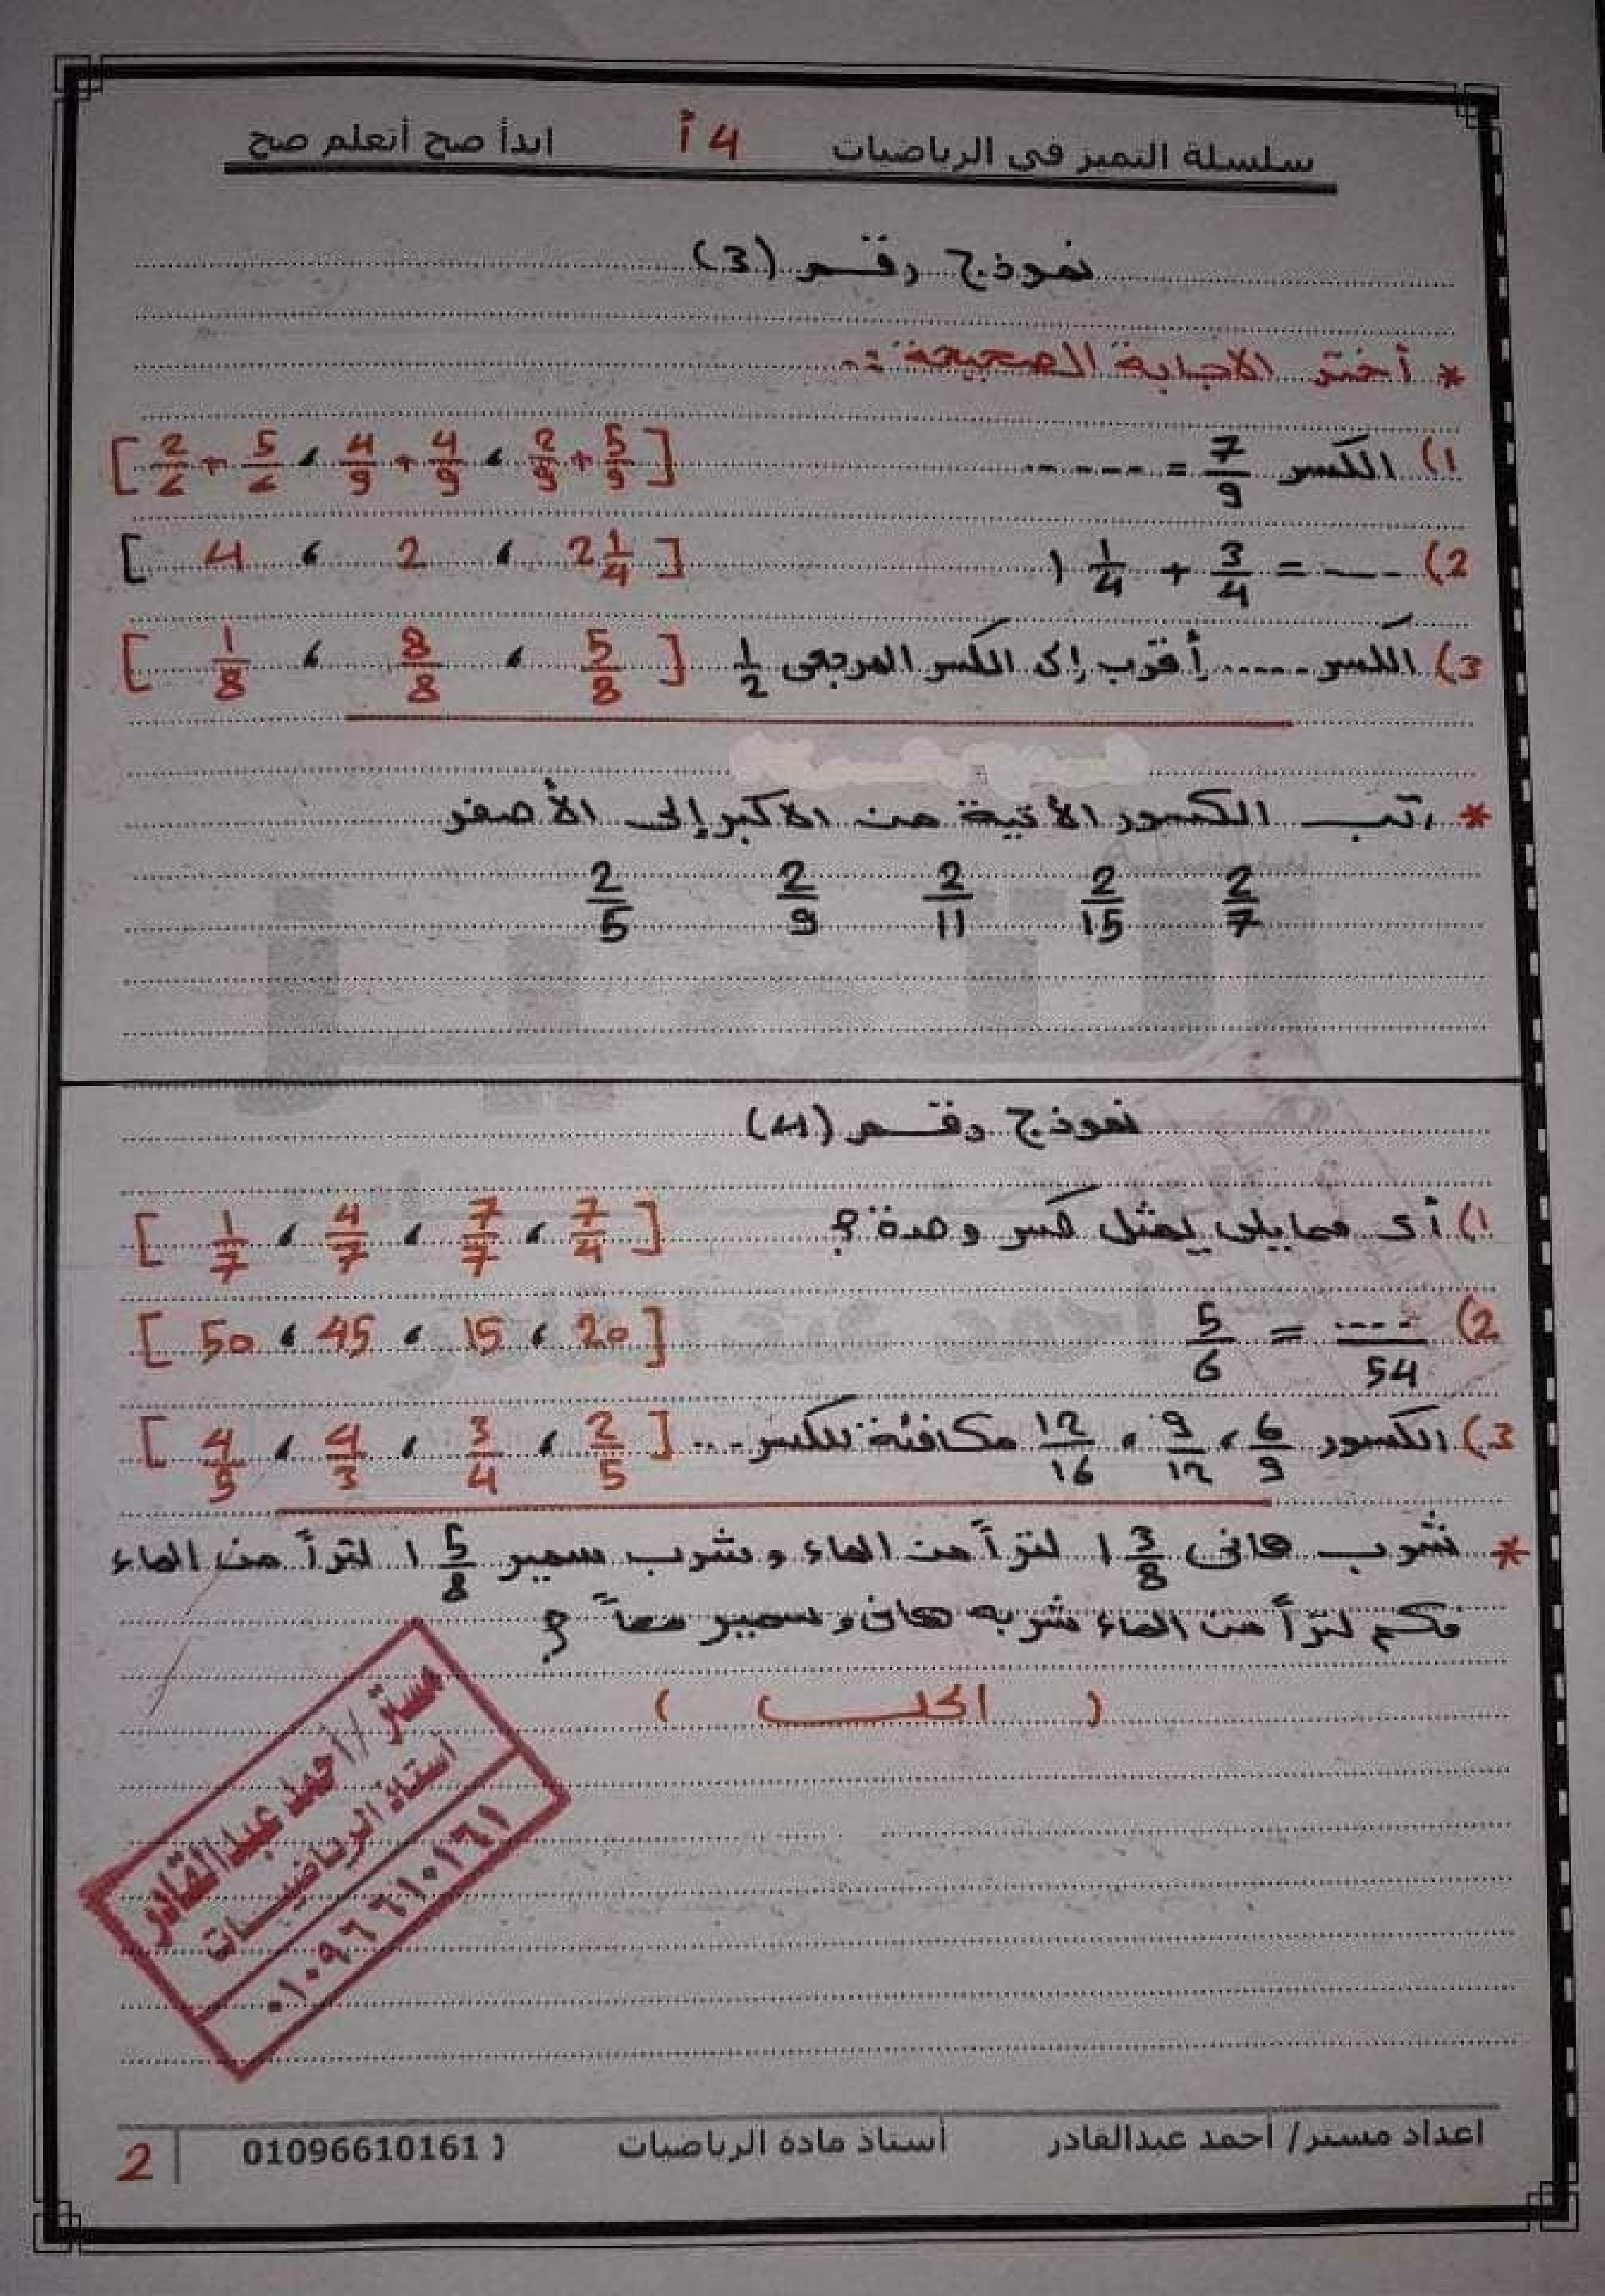 سلسلة التميز في الرياضيات 4 أ ابدأ صح أتعلم صح
نموذج رقم (3)
* أختر الاجابة الصحيحة :-
1) الكسر 7/9 = ------ [ 5/9 + 2/9 ، 4/9 + 4/9 ، 5/6 + 2/6 ]
2) 1 1/4 + 3/4 = ---- [ 2 1/4 ، 2 ، 4 ]
3) الكسر ----- أقرب إلى الكسر المرجعى 1/2 [ 5/8 ، 8/8 ، 1/8 ]
* رتب الكسور الأتية من الأكبر إلى الأصغر
2/7 2/15 2/11 2/9 2/5
نموذج رقم (4)
1) أى مما يلى يمثل كسر وحدة ؟ [ 7/4 ، 7/7 ، 4/7 ، 1/7 ]
2) 5/6 = ..../54 [ 20 ، 15 ، 45 ، 50 ]
3) الكسور 6/9 ، 9/12 ، 12/16 مكافئة للكسر ... [ 2/5 ، 3/4 ، 4/3 ، 4/5 ]
* شرب هانى 1 3/8 لتراً من الماء وشرب سمير 1 5/8 لتراً من الماء
فكم لتراً من الماء شربه هانى وسمير معاً ؟
( الحل )
مستر / أحمد عبدالقادر
أستاذ الرياضيات
٠١٠٩٦٦١٠١٦١
اعداد مستر/ أحمد عبدالقادر أستاذ مادة الرياضيات 01096610161 2